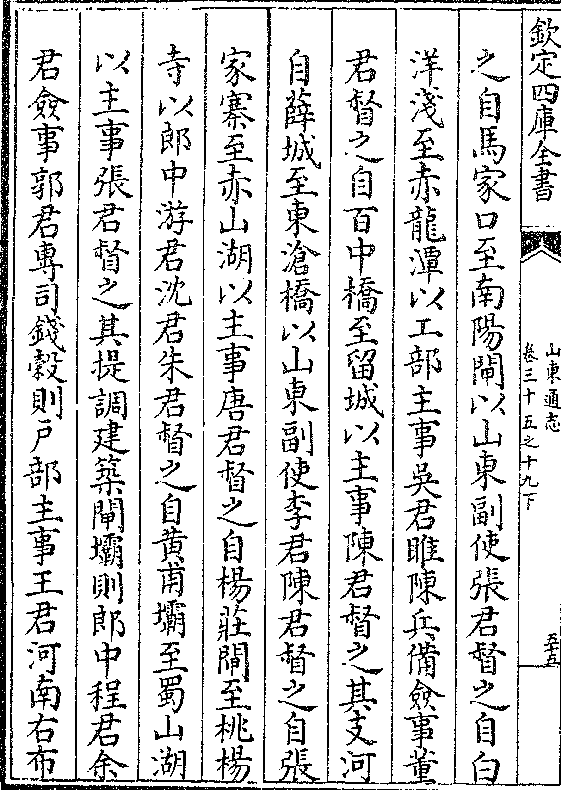 欽定四庫全書
山東通志
卷三十五之十九下
五十五
之自馬家口至南陽閘以山東副使張君督之自白
洋淺至赤龍潭以工部主事吳君睢陳兵備僉事董
君督之自百中橋至留城以主事陳君督之其支河
自薛城至東滄橋以山東副使李君陳君督之自張
家寨至赤山湖以主事唐君督之自楊莊閘至桃楊
寺以郎中游君沈君朱君督之自黄甫壩至蜀山湖
以主事張君督之其提調建築閘壩則郎中程君余
君僉事郭君專司錢穀則户部主事王君河南右布